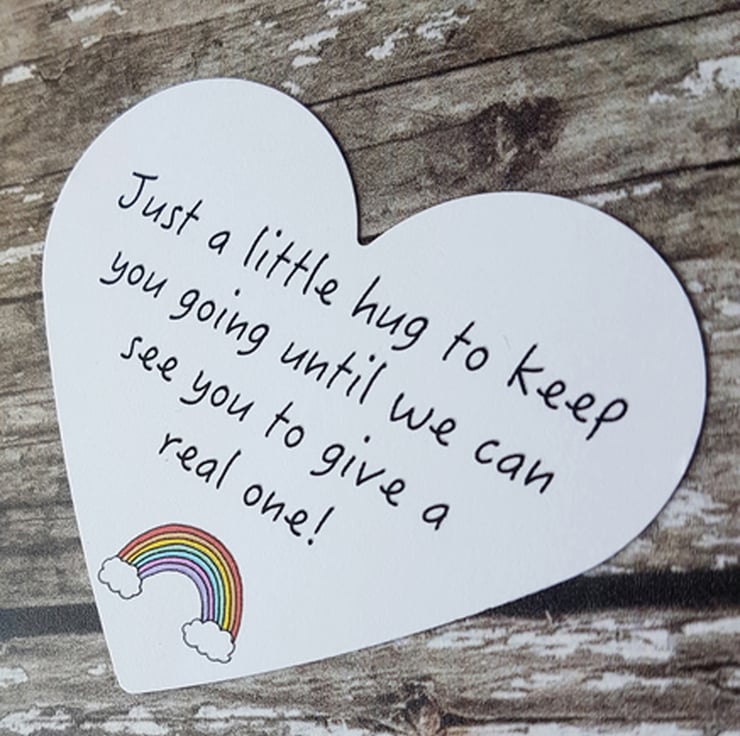 Just a little hug to keep
you going until we can
see you to give a
real one!